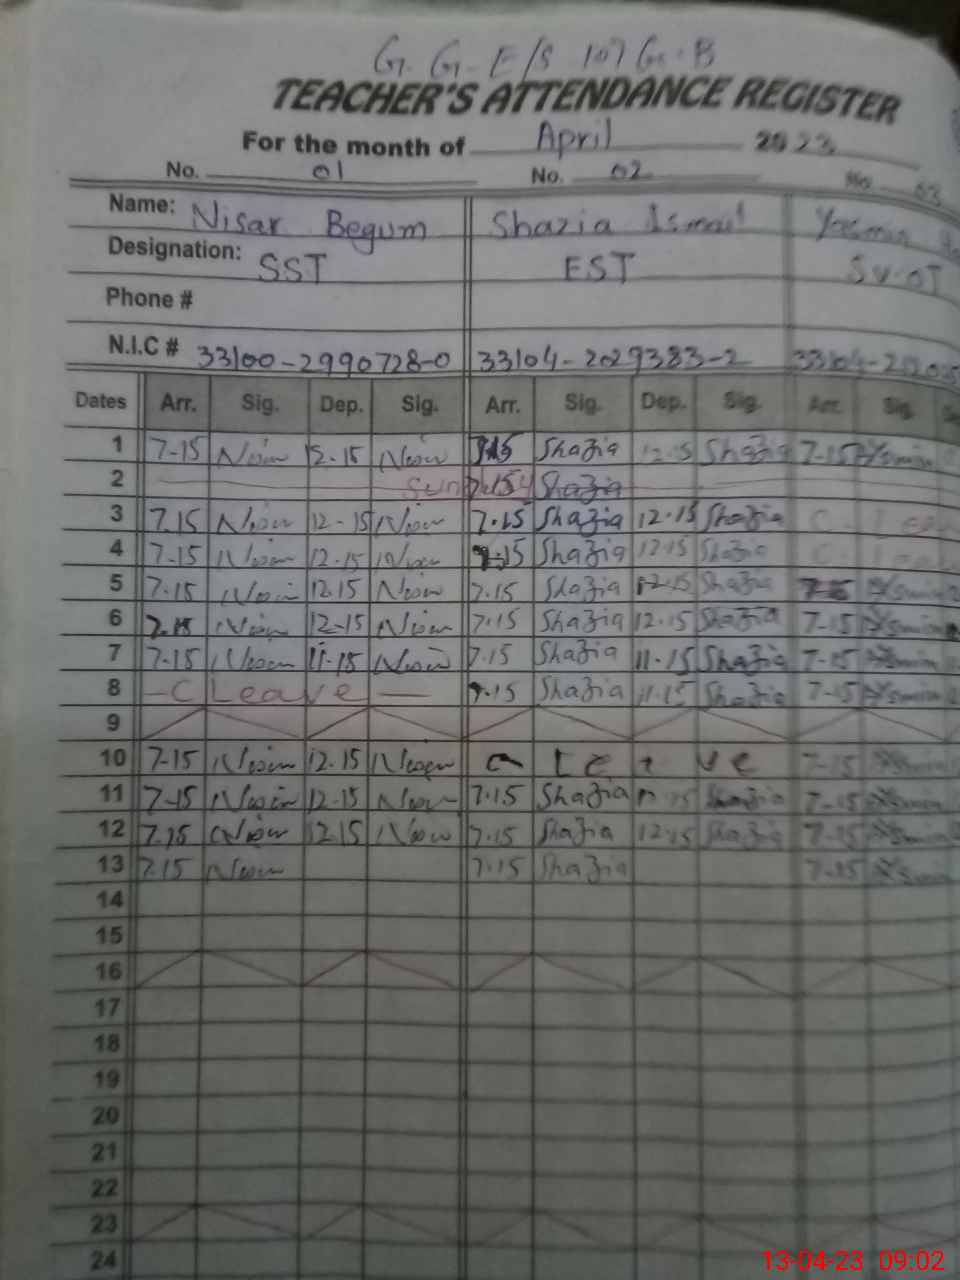 G. G. E/S 107 G.B
TEACHER'S ATTENDANCE REGISTER
For the month of April 2023
No. 01 No. 02 No. 03
Name: Nisar Begum Shazia Ismail Yasmin
Designation: SST EST SV-OT
Phone #
N.I.C # 33100-2990728-0 33104-2029383-2 33104-
Dates Arr. Sig. Dep. Sig. Arr. Sig. Dep. Sig. Arr. Sig.
1 7-15 12-15 7.15 Shazia 12-15 Shazia 7-15 Yasmin
2 Sunday 7.15 Shazia
3 7.15 12-15 7.15 Shazia 12.15 Shazia C
4 7-15 12.15 7.15 Shazia 12.15 Shazia C
5 7.15 12.15 7.15 Shazia 12.15 Shazia Yasmin
6 7.15 12-15 7.15 Shazia 12.15 Shazia 7-15 Yasmin
7 7-15 11-15 7.15 Shazia 11.15 Shazia 7-15 Yasmin
8 - C Leave - 7.15 Shazia 11.15 Shazia 7-15 Yasmin
9
10 7-15 12.15 Leave 7-15 Yasmin
11 7-15 12-15 7.15 Shazia Shazia 7-15 Yasmin
12 7.15 12.15 7.15 Shazia 12.15 Shazia 7-15 Yasmin
13 7.15 7.15 Shazia 7-15 Yasmin
14
15
16
17
18
19
20
21
22
23
24
13-04-23 09:02